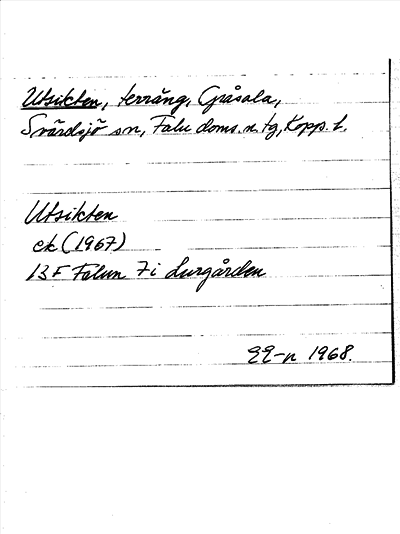 Utsikten, terräng, Gråsala,
Svärdsjö sn, Falu doms. n. tg, Kopp. l.
Utsikten
ek (1967)
13 F Falun 7 i Lurgården
EE-n 1968.